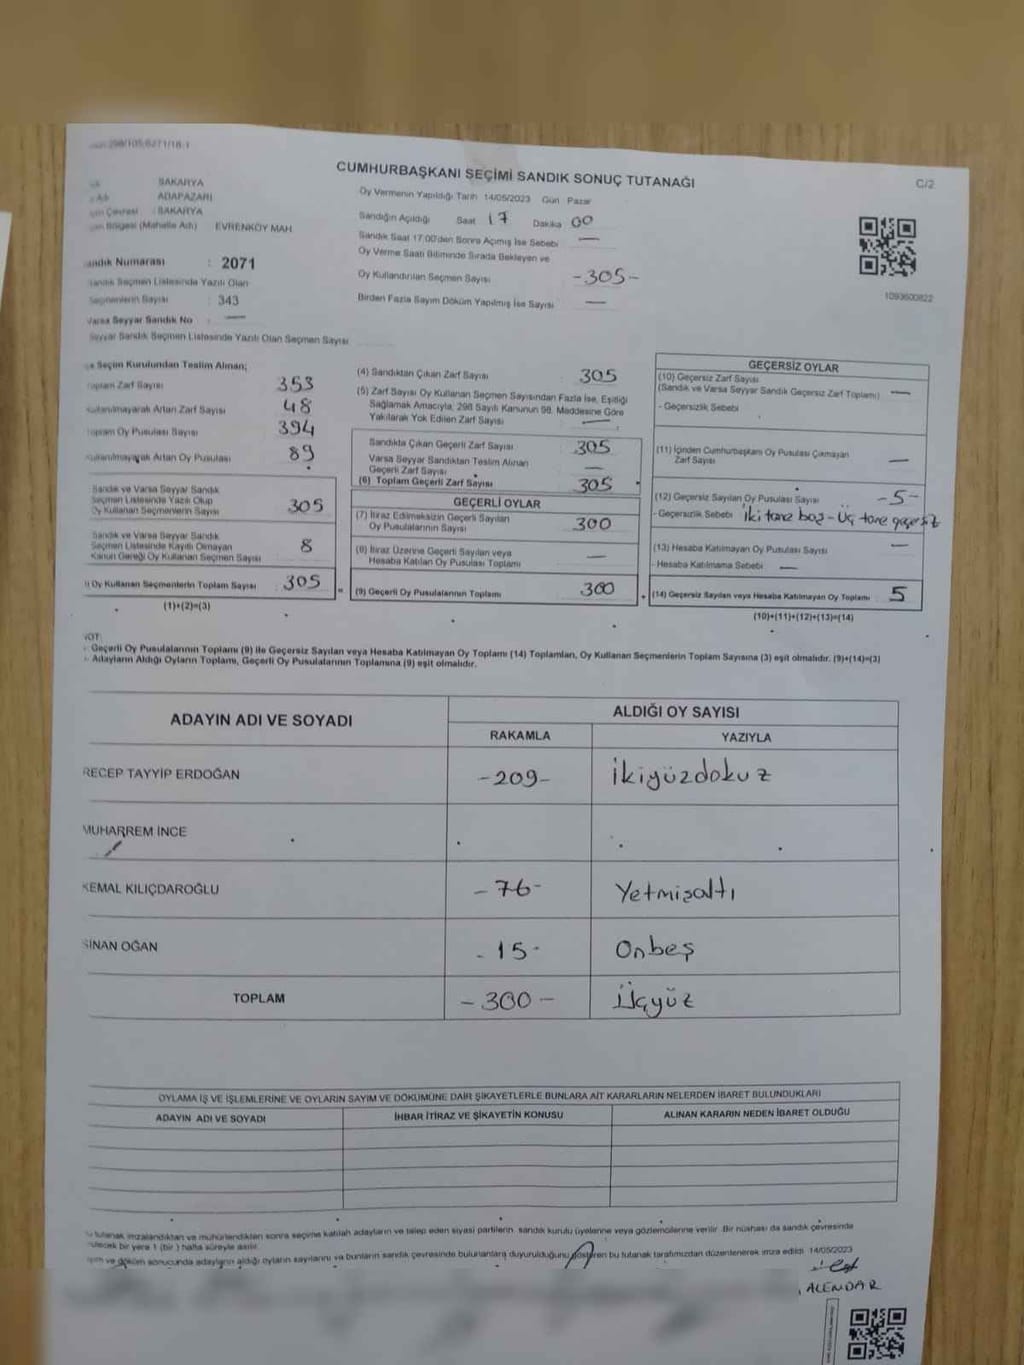 CUMHURBAŞKANI SEÇİMİ SANDIK SONUÇ TUTANAĞI
C/2
SAKARYA
ADAPAZARI
SAKARYA
(Mahalle Adı) EVRENKÖY MAH.
Sandık Numarası : 2071
Sandık Seçmen Listesinde Yazılı Olan
Seçmenlerin Sayısı : 343
Varsa Seyyar Sandık No : —
Seyyar Sandık Seçmen Listesinde Yazılı Olan Seçmen Sayısı
Oy Vermenin Yapıldığı Tarih 14/05/2023 Gün Pazar
Sandığın Açıldığı Saat 17 Dakika 00
Sandık Saat 17:00'den Sonra Açımış İse Sebebi —
Oy Verme Saati Bitiminde Sırada Bekleyen ve
Oy Kullandırılan Seçmen Sayısı -305-
Birden Fazla Sayım Döküm Yapılmış İse Sayısı —
1093600822
Seçim Kurulundan Teslim Alınan;
Toplam Zarf Sayısı 353
Kullanılmayarak Artan Zarf Sayısı 48
Toplam Oy Pusulası Sayısı 394
Kullanılmayarak Artan Oy Pusulası 89
Sandık ve Varsa Seyyar Sandık
Seçmen Listesinde Yazılı Olup
Oy Kullanan Seçmenlerin Sayısı 305
Sandık ve Varsa Seyyar Sandık
Seçmen Listesinde Kayıtlı Olmayan
Kanun Gereği Oy Kullanan Seçmen Sayısı 8
Oy Kullanan Seçmenlerin Toplam Sayısı 305
(1)+(2)=(3)
(4) Sandıktan Çıkan Zarf Sayısı 305
(5) Zarf Sayısı Oy Kullanan Seçmen Sayısından Fazla İse, Eşitliği
Sağlamak Amacıyla, 298 Sayılı Kanunun 98. Maddesine Göre
Yakılarak Yok Edilen Zarf Sayısı —
Sandıkta Çıkan Geçerli Zarf Sayısı 305
Varsa Seyyar Sandıktan Teslim Alınan
Geçerli Zarf Sayısı —
(6) Toplam Geçerli Zarf Sayısı 305
GEÇERLİ OYLAR
(7) İtiraz Edilmeksizin Geçerli Sayılan
Oy Pusulalarının Sayısı 300
(8) İtiraz Üzerine Geçerli Sayılan veya
Hesaba Katılan Oy Pusulası Toplamı —
(9) Geçerli Oy Pusulalarının Toplamı 300
GEÇERSİZ OYLAR
(10) Geçersiz Zarf Sayısı
(Sandık ve Varsa Seyyar Sandık Geçersiz Zarf Toplamı) —
- Geçersizlik Sebebi
(11) İçinden Cumhurbaşkanı Oy Pusulası Çıkmayan
Zarf Sayısı —
(12) Geçersiz Sayılan Oy Pusulası Sayısı -5-
- Geçersizlik Sebebi iki tane boş - Üç tane geçersiz
(13) Hesaba Katılmayan Oy Pusulası Sayısı —
- Hesaba Katılmama Sebebi —
(14) Geçersiz Sayılan veya Hesaba Katılmayan Oy Toplamı 5
(10)+(11)+(12)+(13)=(14)
NOT:
- Geçerli Oy Pusulalarının Toplamı (9) ile Geçersiz Sayılan veya Hesaba Katılmayan Oy Toplamı (14) Toplamları, Oy Kullanan Seçmenlerin Toplam Sayısına (3) eşit olmalıdır. (9)+(14)=(3)
- Adayların Aldığı Oyların Toplamı, Geçerli Oy Pusulalarının Toplamına (9) eşit olmalıdır.
ADAYIN ADI VE SOYADI ALDIĞI OY SAYISI
RAKAMLA YAZIYLA
RECEP TAYYİP ERDOĞAN -209- İkiyüzdokuz
MUHARREM İNCE
KEMAL KILIÇDAROĞLU -76- Yetmişaltı
SİNAN OĞAN -15- Onbeş
TOPLAM -300- Üçyüz
OYLAMA İŞ VE İŞLEMLERİNE VE OYLARIN SAYIM VE DÖKÜMÜNE DAİR ŞİKAYETLERLE BUNLARA AİT KARARLARIN NELERDEN İBARET BULUNDUKLARI
ADAYIN ADI VE SOYADI İHBAR İTİRAZ VE ŞİKAYETİN KONUSU ALINAN KARARIN NEDEN İBARET OLDUĞU
tutanak imzalandıktan ve mühürlendikten sonra seçime katılan adayların ve talep eden siyasi partilerin, sandık kurulu üyelerine veya gözlemcilerine verilir. Bir nüshası da sandık çevresinde
bir yere 1 (bir) hafta süreyle asılır.
ve döküm sonucunda adayların aldığı oyların sayılarını ve bunların sandık çevresinde bulunanlara duyurulduğunu gösteren bu tutanak tarafımızdan düzenlenerek imza edildi 14/05/2023
ALENDAR